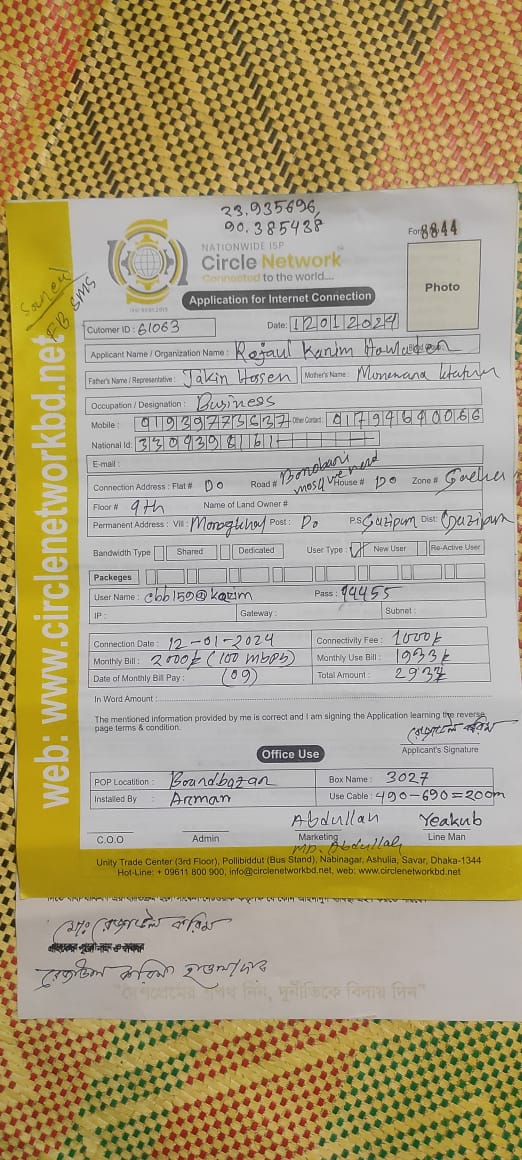 23.935696,
90.385438
Saved
FB SMS
NATIONWIDE ISP
Circle Network
Connected to the world....
For 8844
Photo
Application for Internet Connection
Cutomer ID : 61063 Date: 12012024
Applicant Name / Organization Name : Rejaul Karim Howlader
Father's Name / Representative : Jakin Hosen Mother's Name :
Occupation / Designation : Business
Mobile : 01939773637 Other Contact :
National Id:
E-mail :
Connection Address : Flat # Do Road # mosque road House # Do Zone #
Floor # 9th Name of Land Owner #
Permanent Address : Vill : Post : Do P.S Gazipur Dist: Gazipur
Bandwidth Type Shared Dedicated User Type : New User Re-Active User
Packeges
User Name : cbb159@karim Pass : 14455
IP : Gateway : Subnet :
Connection Date : 12-01-2024 Connectivity Fee : 1000
Monthly Bill : 2000 (100 mbps) Monthly Use Bill : 1933
Date of Monthly Bill Pay : (09) Total Amount : 2933
In Word Amount :
The mentioned information provided by me is correct and I am signing the Application learning the reverse
page terms & condition.
Applicant's Signature
Office Use
POP Locatition : Boardbazar Box Name : 3027
Installed By : Arman Use Cable : 490-690=200m
Abdullah Yeakub
C.O.O Admin Marketing Line Man
MD. Abdullah
Unity Trade Center (3rd Floor), Pollibiddut (Bus Stand), Nabinagar, Ashulia, Savar, Dhaka-1344
Hot-Line: + 09611 800 900, info@circlenetworkbd.net, web: www.circlenetworkbd.net
web: www.circlenetworkbd.net
মোঃ রেজাউল করিম
রেজাউল করিম হাওলাদার
"দেশপ্রেমের শপথ নিন, দুর্নীতিকে বিদায় দিন"